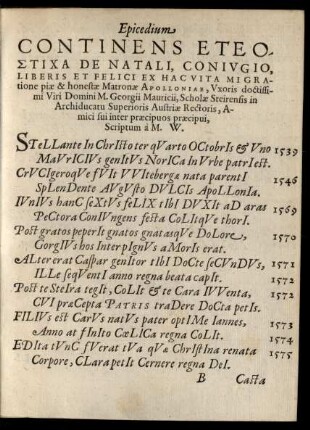 Epicedium
CONTINENS ETEO-
STIXA DE NATALI, CONIVGIO,
LIBERIS ET FELICI EX HAC VITA MIGRA
tione piæ & honestæ Matronæ APOLLONIAE, Vxoris doctissi-
mi Viri Domini M. Georgii Mauricii, Scholæ Steirensis in
Archiducatu Superioris Austriæ Rectoris, A-
mici sui inter præcipuos præcipui,
Scriptum á M. W.
STeLLante In ChrIsto ter qVarto OCtobrIs & Vno 1539
MaVrICIVs genItVs NorICa In Vrbe patrIest.
CrVCIgeroqVe fVIt VVItebergæ nata parentI 1546
SpLenDente AVgVsto DVLCIs ApoLLonIa.
IVnIVs hanC seXtVs feLIX tIbI DVXIt aD aras 1569
PeCtora ConIVngens festa CoLItqVe thorI.
Post gratos peperIt gnatos gnatasqVe DoLore, 1570
GorgIVs hos InterpIgnVs aMorIs erat.
ALter erat Caspar genItor tIbI DoCte seCVnDVs, 1571
ILLe seqVentI anno regna beata capIt. 1572
Post te SteIra tegIt, CoLIt & te Cara IVVenta, 1572
CVI præCepta PATRIS traDere DoCta petIs.
FILIVs est CarVs natVs pater optIMe Iannes, 1573
Anno at fInIto CæLICa regna CoLIt. 1574
EDIta tVnC fVerat tVa qVæ ChrIstIna renata 1575
Corpore, CLara petIt Cernere regna DeI.
B Casta